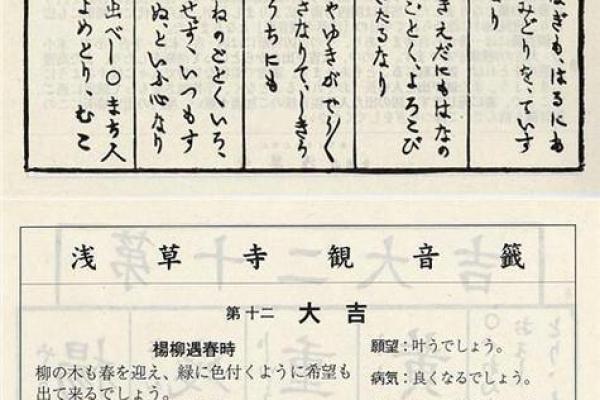 なぎもはるにあ
みどりをていす
り
きえだにもはなの
ごとくよろこび
きたるなり
やゆきがやうく
さなりてしきら
うちにも
ねのとどくいろ
せず、いつもす
ぬ、といふ心なり
出べし〇まち人
よめとり、むこ
浅草寺観音籤
第十二 大吉
楊柳遇春時
柳の木も春を迎え、緑に色付くように希望も
出て来るでしょう。
願望：叶うでしょう。
病気：良くなるでしょう。